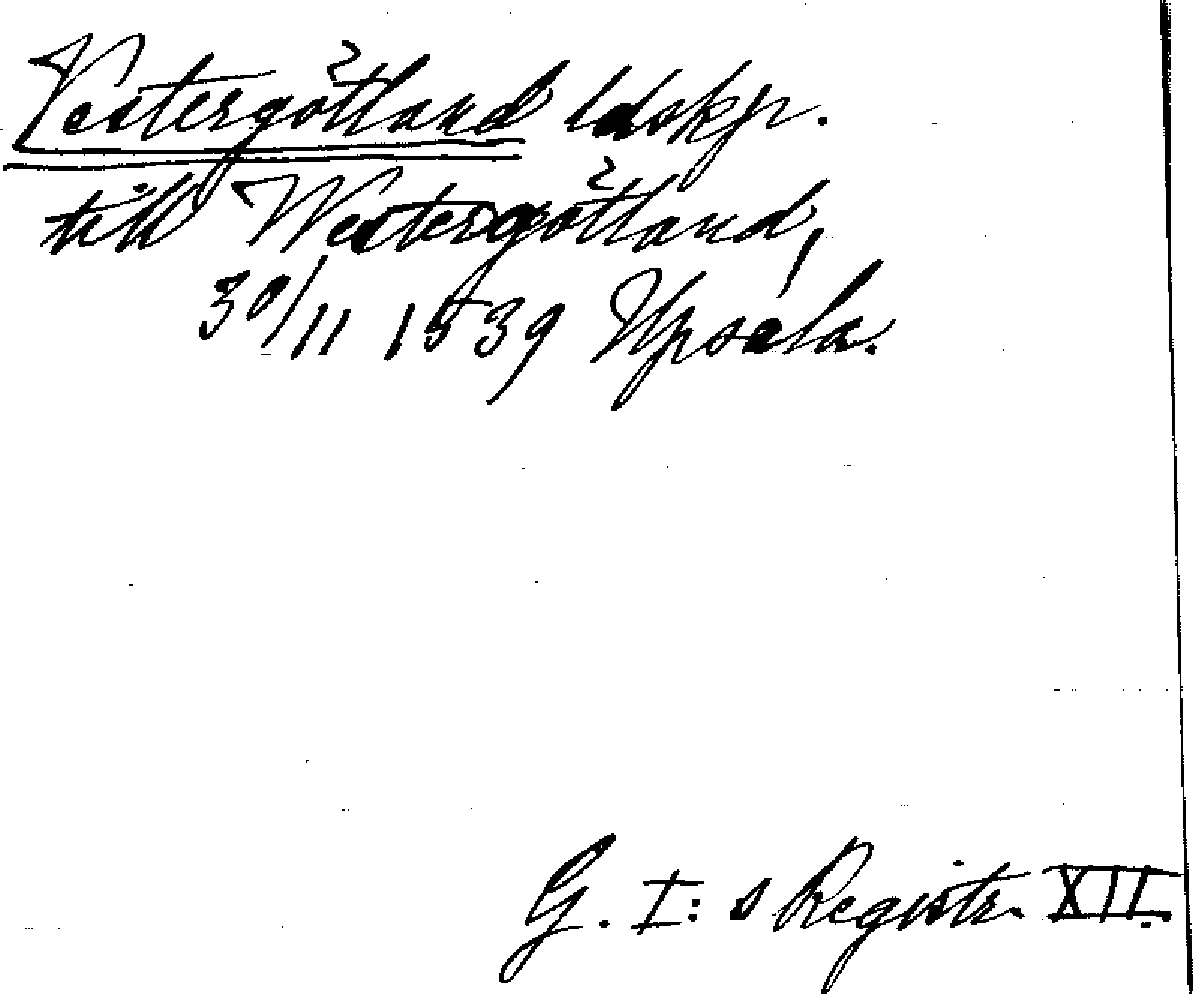 Vestergötland ldskp.
till Westergötland,
30/11 1539 Upsala.
G. I: s Registr. XII.